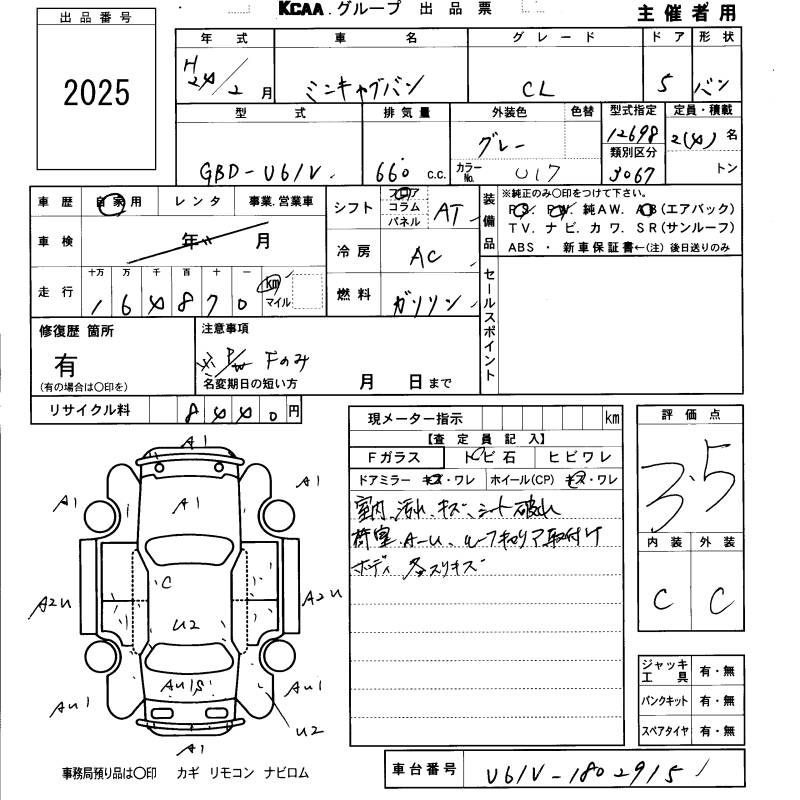 KCAA. グループ 出品票
主催者用
出品番号
2025
年式 車名 グレード ドア 形状
H24/2月 ミニキャブバン CL 5 バン
型式 排気量 外装色 色替 型式指定 定員・積載
GBD-U61V 660 c.c. グレー 12698 2(4)名
カラーNo. U17 類別区分 3067 トン
車歴 自家用 レンタ 事業.営業車
車検 年 月
走行 十万 万 千 百 十 一
164870 km マイル
シフト フロア コラム パネル AT
冷房 AC
燃料 ガソリン
装備品 ※純正のみ○印をつけて下さい。
PS. PW. 純AW. AB(エアバック)
TV. ナビ. カワ. SR(サンルーフ)
ABS ・ 新車保証書←(注) 後日送りのみ
セールスポイント
修復歴 箇所
有
(有の場合は○印を)
注意事項
※ P/W Fのみ
名変期日の短い方 月 日まで
リサイクル料 8440円
現メーター指示 km
【査定員記入】
Fガラス トビ石 ヒビワレ
ドアミラー キズ・ワレ ホイール(CP) キズ・ワレ
室内、汚れ、キズ、シート破れ
荷室、A-U、ルーフキャリア取付け
ボディ 各スリキズ
評価点
3.5
内装 外装
C C
A1
A1 A1 A1
C
A2U A2U
U2
AU1S
AU1 AU1
U2
A1
ジャッキ工具 有・無
パンクキット 有・無
スペアタイヤ 有・無
事務局預り品は○印 カギ リモコン ナビロム
車台番号 U61V-1802915